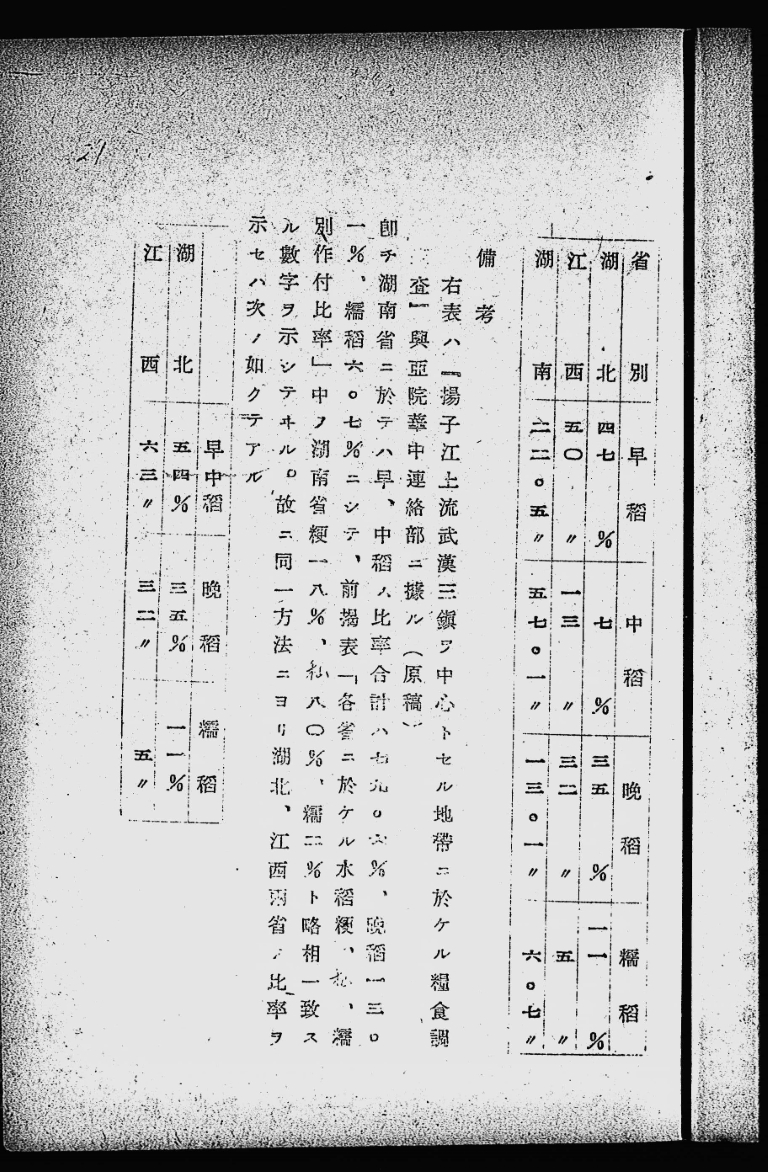 21
省別 早稻 中稻 晚稻 糯稻
湖北 四七% 七% 三五% 一一%
江西 五〇〃 一三〃 三二〃 五〃
湖南 二二。五〃 五七。一〃 一三。一〃 六。七〃
備考
右表ハ「揚子江上流武漢三鎭ヲ中心トセル地帶ニ於ケル糧食調
査」興亞院華中連絡部ニ據ル(原稿)
卽チ湖南省ニ於テハ早、中稻ノ比率合計ハ七九。六%、晚稻一三。
一%、糯稻六。七%ニシテ、前揭表「各省ニ於ケル水稻粳、籼、糯
別作付比率」中ノ湖南省粳一八%、籼八〇%、糯二%ト略相一致ス
ル數字ヲ示シテヰル。故ニ同一方法ニヨリ湖北、江西兩省ノ比率ヲ
示セハ次ノ如クテアル
早中稻 晚稻 糯稻
湖北 五四% 三五% 一一%
江西 六三〃 三二〃 五〃